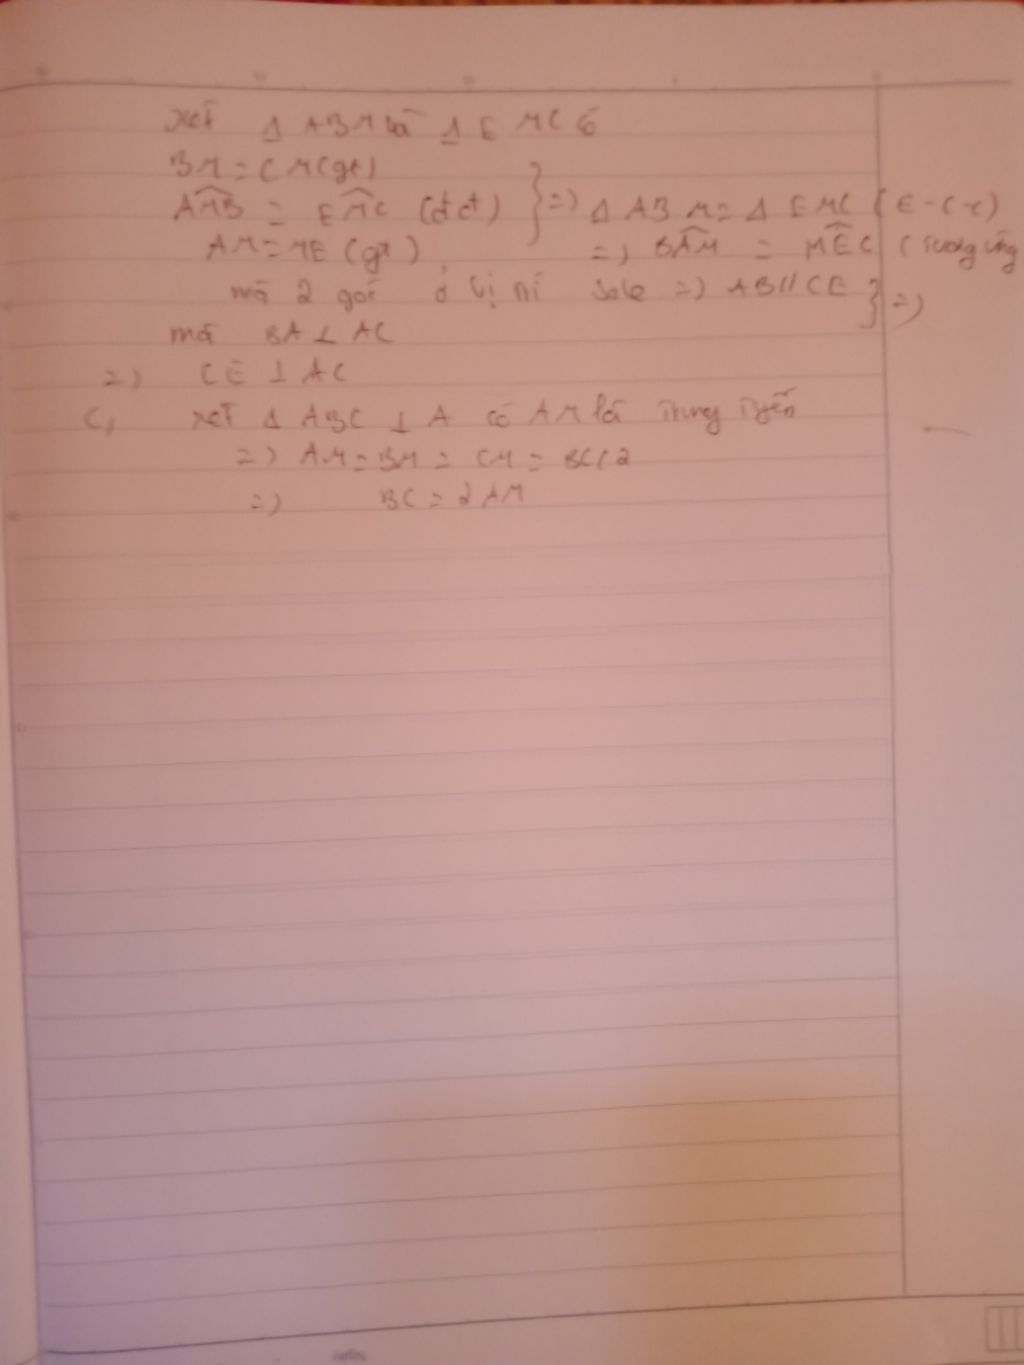 xét Δ ABM và Δ EMC có
BM = CM (gt)
AMB = EMC (đđ) } => Δ ABM = Δ EMC (c-g-c)
AM = ME (gt) => BAM = MEC (tương ứng
mà 2 góc ở vị trí sole => AB // CE } =>
mà BA ⊥ AC
=> CE ⊥ AC
c, xét Δ ABC ⊥ A có AM là trung tuyến
=> AM = BM = CM = BC/2
=> BC = 2AM